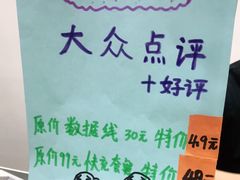 大众点评
+好评
原价 数据线 30元 特价 49元
原价 99元 快充套装 特价